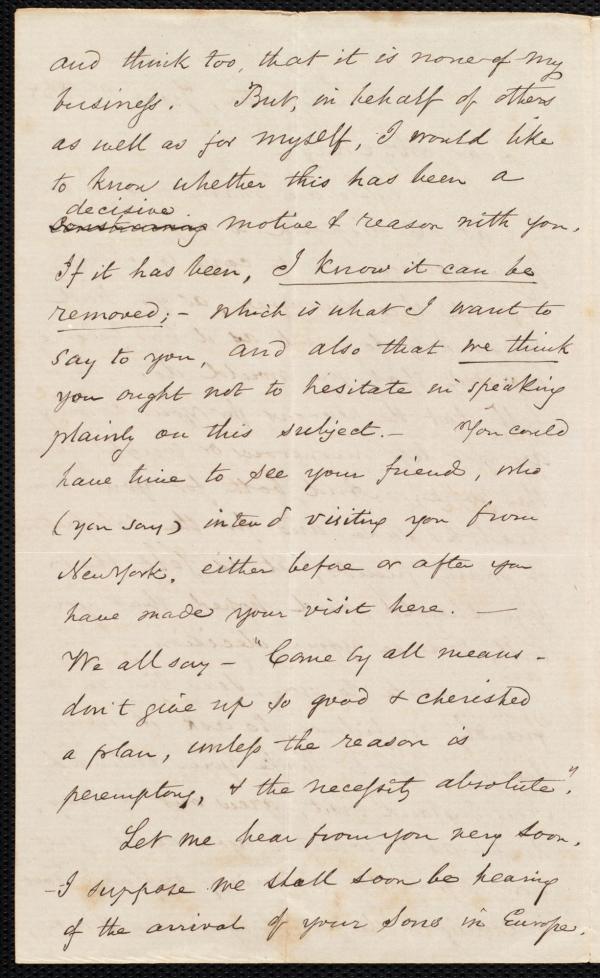 and think too, that it is none of my
business. But, in behalf of others
as well as for myself, I would like
to know whether this has been a
decisive
constraining motive & reason with you.
If it has been, I know it can be
removed; - which is what I want to
say to you, and also that we think
you ought not to hesitate in speaking
plainly on this subject. - You could
have time to see your friend, who
(you say) intend visiting you from
New York, either before or after you
have made your visit here. —
We all say - "Come by all means -
don't give up so good & cherished
a plan, unless the reason is
peremptory, & the necessity absolute".
Let me hear from you very soon.
- I suppose we shall soon be hearing
of the arrival of your sons in Europe.